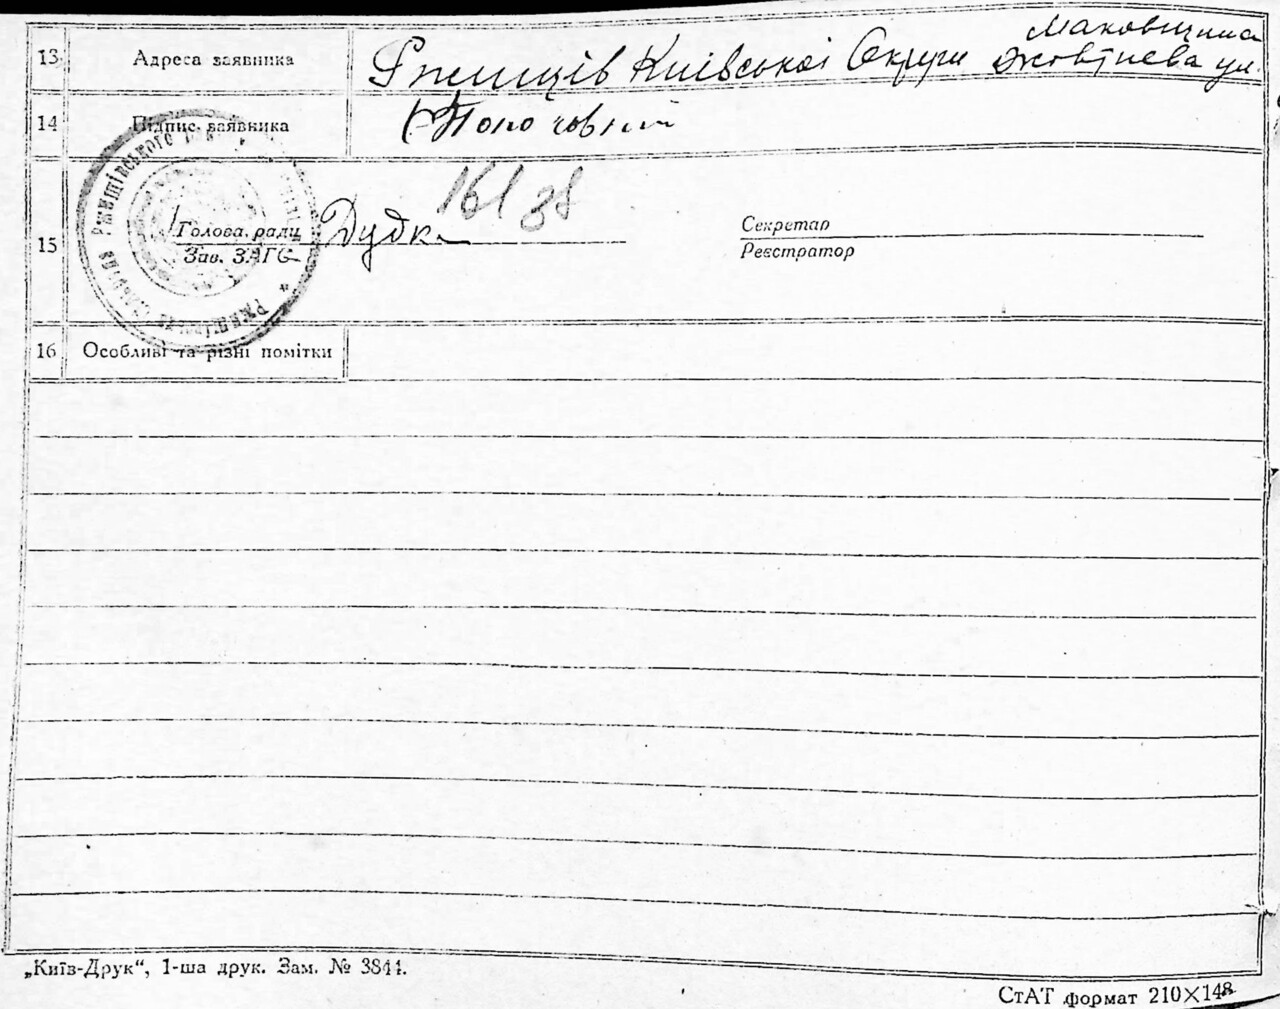 Маковщина
13 Адреса заявника Ржищів Київської Округи Жовтнева ул.
14 Підпис заявника
161 38
Голова ради Дудка Секретар
15
Зав. ЗАГС Реєстратор
РЖИЩІВСЬКОГО
16 Особливі та різні помітки
„Київ-Друк“, 1-ша друк. Зам. № 3844.
СтАТ формат 210×148